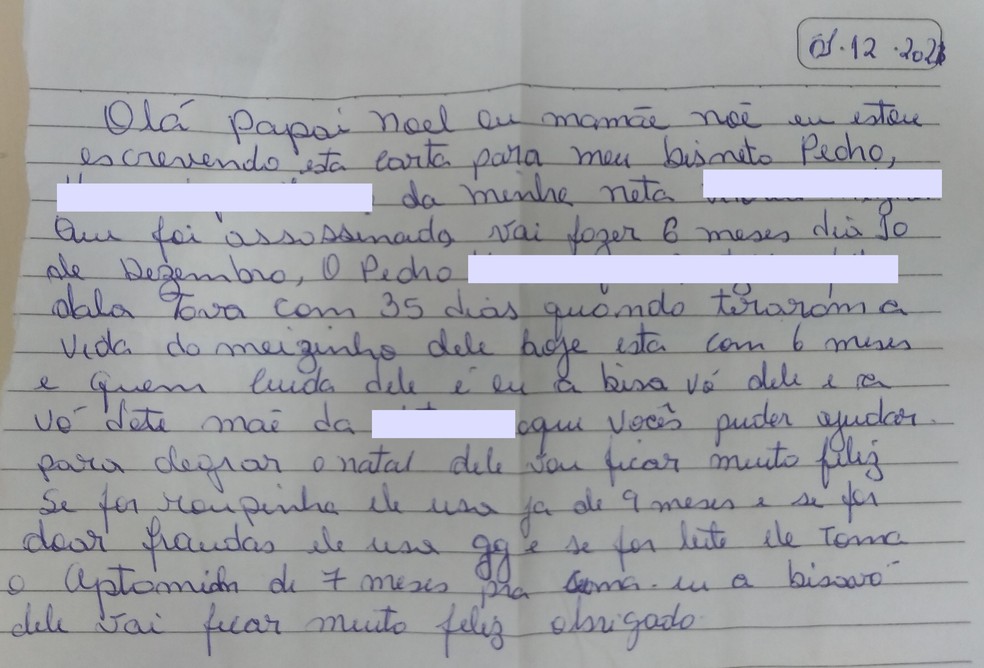 01.12.2021
Olá papai noel eu mamãe noé eu estou
escrevendo esta carta para meu bisneto Pedho,
da minha neta
Que foi assassinada vai fazer 6 meses dia 10
de Dezembro, O Pedho
dala Tava com 35 dias quando tiraram a
vida da meizinha dele hoje esta com 6 meses
e quem cuida dele é eu a bisa vó dele e a
vó dete maē da aqui vocês puder ajudar.
para alegrar o natal dele vou ficar muito feliz
Se for roupinha ele usa ja de 9 meses e se for
doar fraudas ele usa gg e se for leite ele Toma
o Aptomidn de 7 meses pra sima. eu a bisavó
dele vai ficar muito feliz obrigado